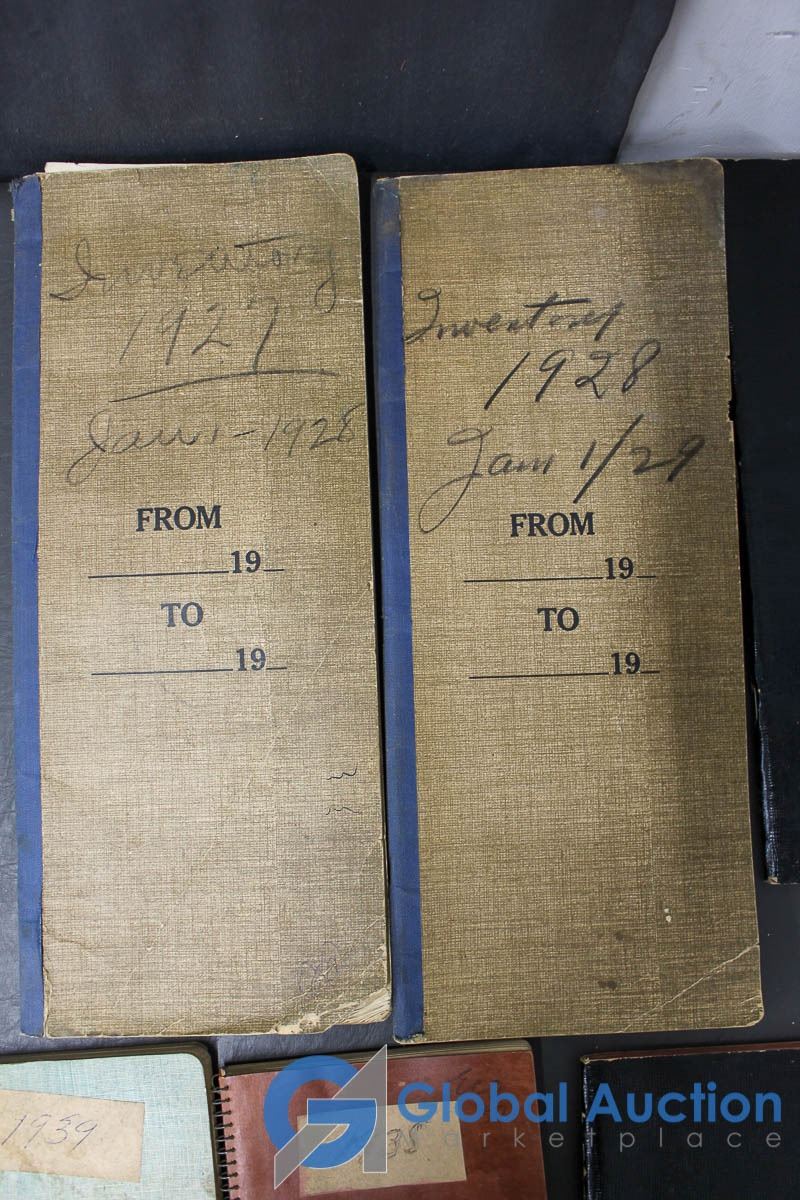 Inventory
1927
Jan 1-1928
FROM
19
TO
19
Inventory
1928
Jan 1/29
FROM
19
TO
19
1939
Global Auction
Marketplace